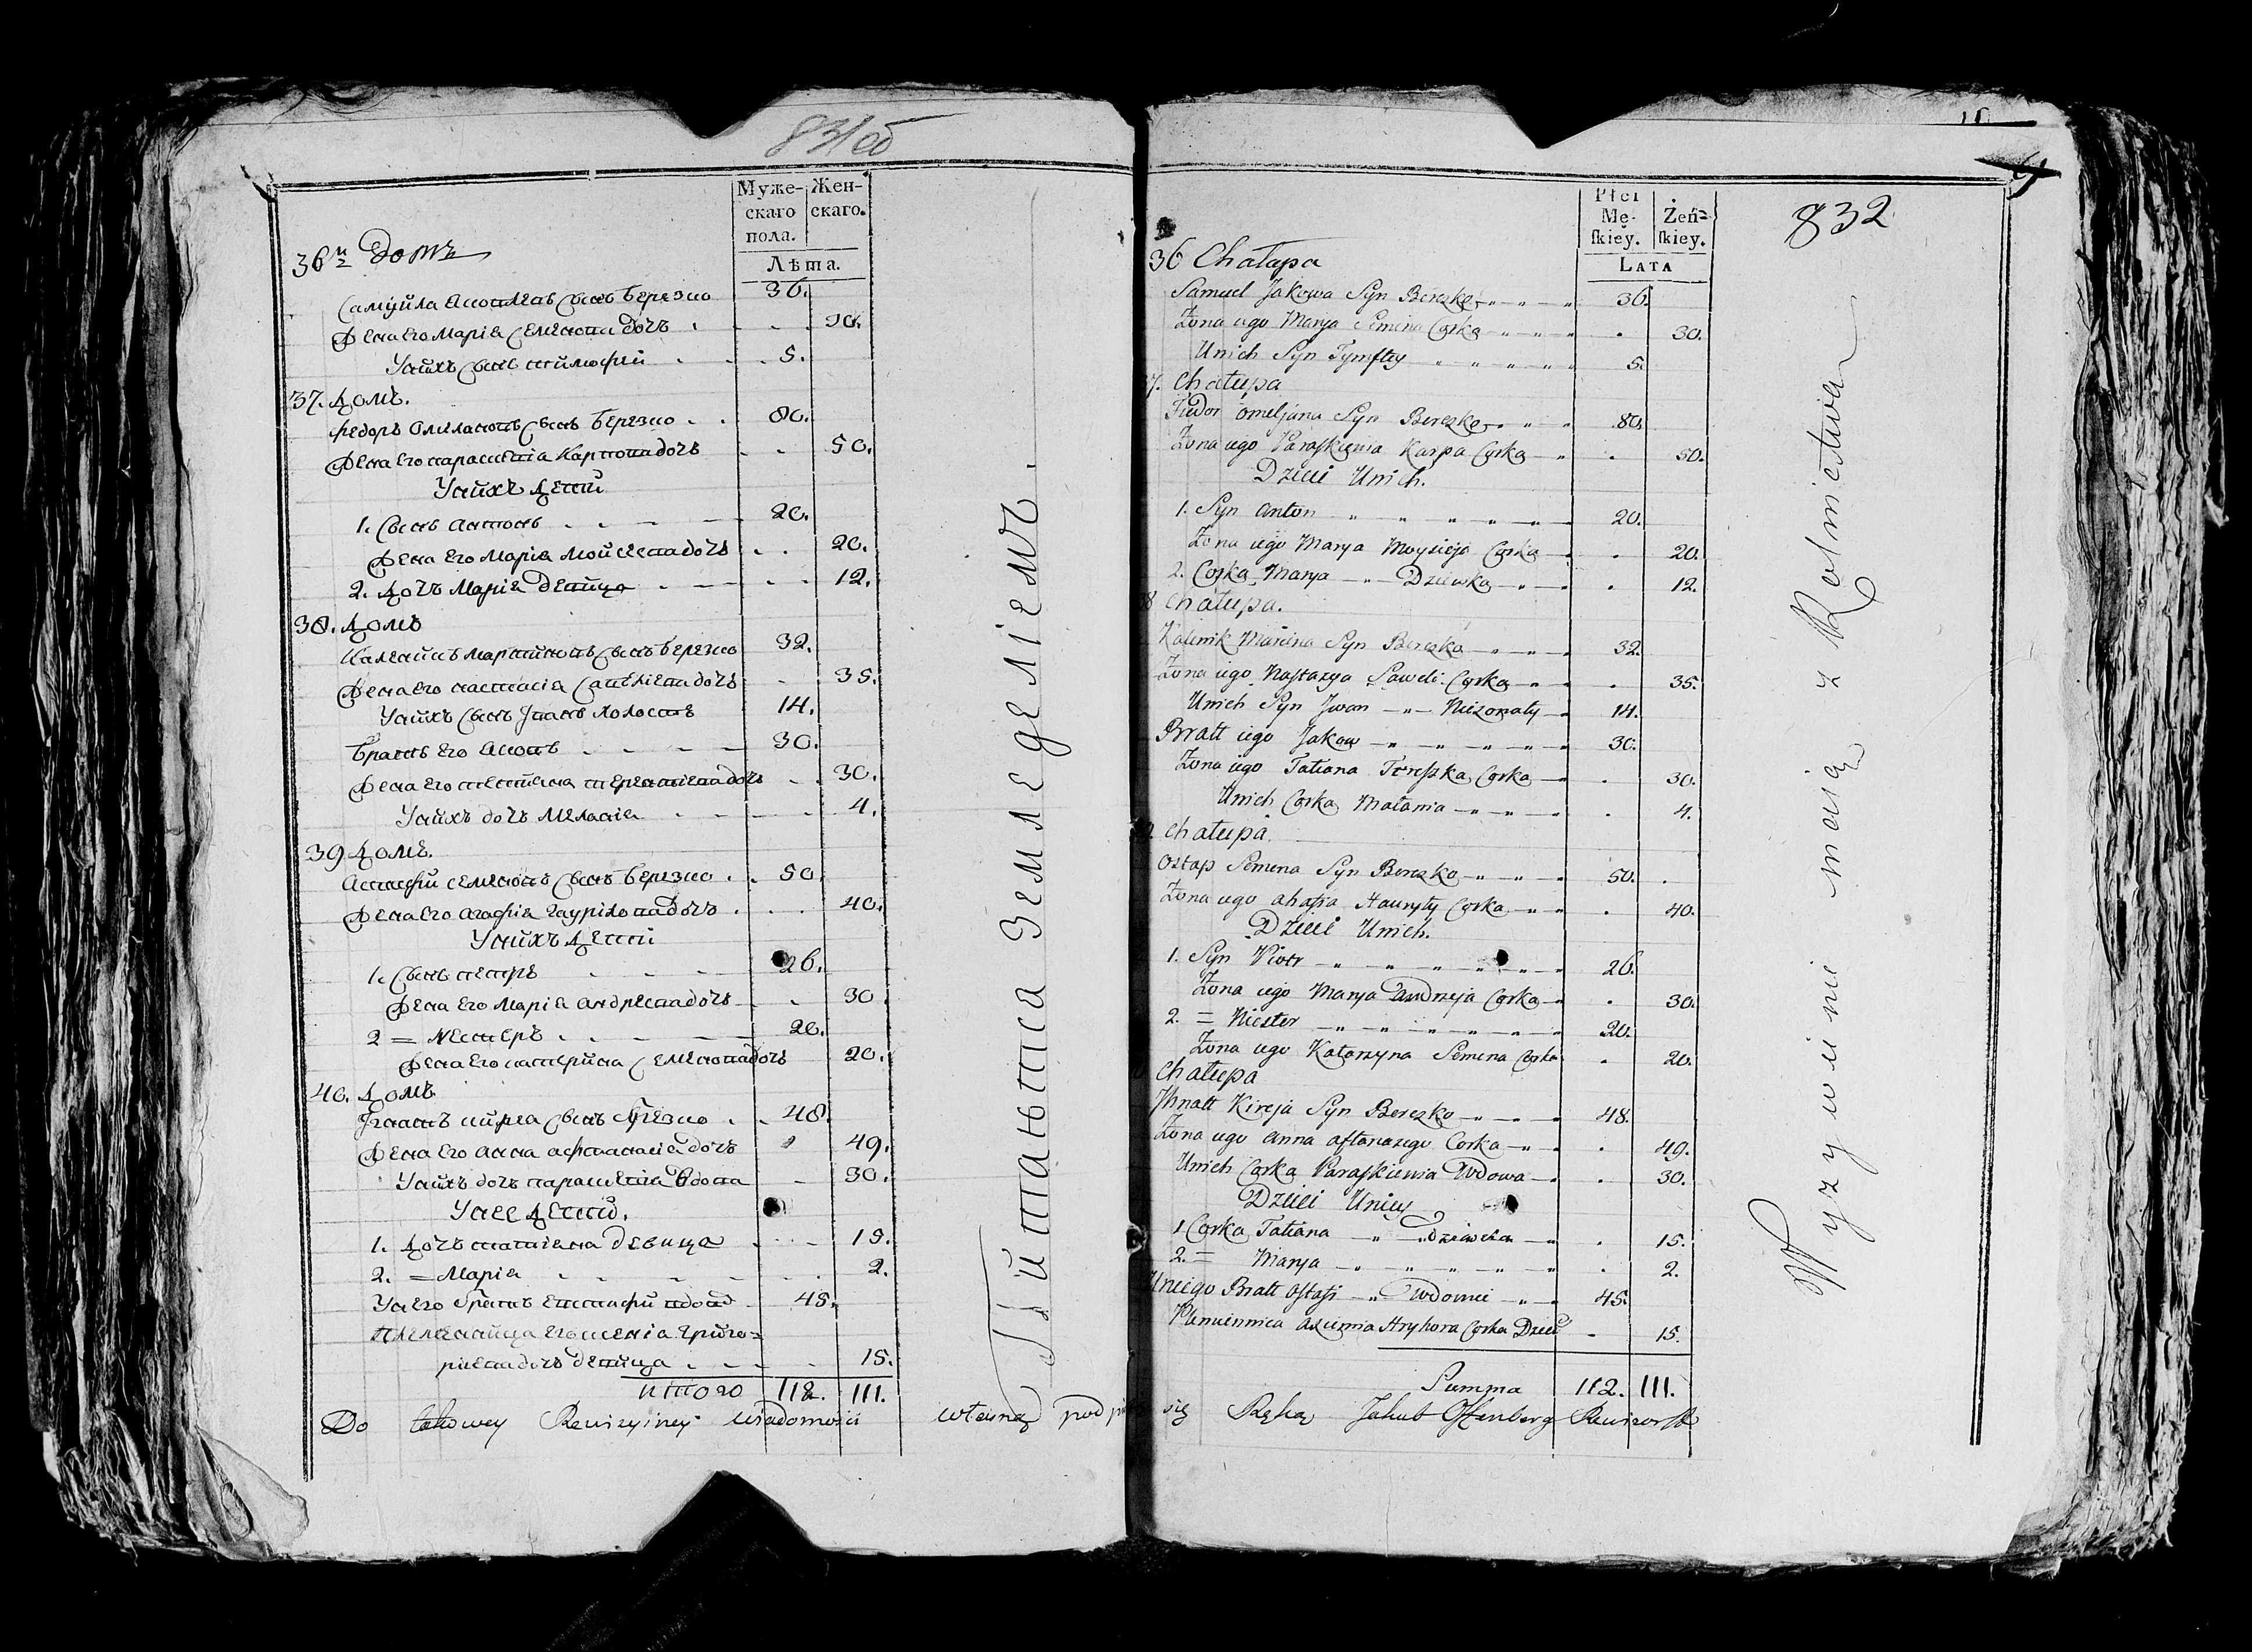 831об
Муже-
скаго
пола.
Жен-
скаго.
Лѣта.
36й домъ
Самуйла Яковлевъ Сынъ Березко 36.
Жена его Марiя Семенова дочь 30.
У нихъ Сынъ Тимофей 5.
37. домъ.
Федоръ Омеляновъ Сынъ Березко 80.
Жена его Парасковiя Карпова дочь 50.
У нихъ дети
1. Сынъ Антонъ 20.
Жена его Марiя Мойсеева дочь 20.
2. дочь Марiя девица 12.
38. домъ
Каленикъ Мартиновъ Сынъ Березко 32.
Жена его Настасiя Савелiева дочь 35.
У нихъ Сынъ Iванъ холостъ 14.
Братъ его Яковъ 30.
Жена его Татiяна Терентiева дочь 30.
У нихъ дочь Меланiя 4.
39 домъ.
Астафiй Семеновъ Сынъ Березко 50.
Жена его Агафiя Гаурилова дочь 40.
У нихъ дети
1. Сынъ Петръ 26.
Жена его Марiя Андреева дочь 30
2 = Нестеръ 20.
Жена его Катерина Семенова дочь 20.
40. домъ
Iгнатъ Кирея Сынъ Березко 48.
Жена его Анна Афтанасiя дочь 49.
У нихъ дочь Парасковiя Вдова 30.
У нее дети.
1. дочь Татiяна девица 15.
2. = Марiя 2.
У него братъ Евстафiй вдов 45.
Племенница его Ксенiя Григо=
риева дочь девица 15.
итого 112. 111.
Питаютса Земледелiемъ.
Do takowey Rewizyiney wiadomości własną podpi
832
Płci
Mę-
skiey.
Żeń=
skiey.
LATA
36 Chałupa
Samuel Jakowa Syn Berezko 36.
Żona iego Marya Semena Corka 30.
Unich Syn Tymftey 5.
7. Chałupa
Fiedor Omeljana Syn Berezko 80.
Żona iego Paraskiewia Karpa Corka 50.
Dzieci Unich.
1. Syn Anton 20.
Żona iego Marya Moysieja Corka 20.
2. Corka Marya Dziewka 12.
8 Chałupa.
Kalenik Marcina Syn Berezko 32.
Żona iego Nastazya Saweli Corka 35.
Unich Syn Jwan Nieżonaty 14.
Bratt iego Jakow 30.
Żona iego Tatiana Tereszka Corka 30.
Unich Corka Małania 4.
Chałupa.
Ostap Semena Syn Berezko 50.
Żona iego Ahafia Hauryły Corka 40.
Dzieci Unich.
1. Syn Piotr 26.
Żona iego Marya Andrzeja Corka 30.
2. = Niester 20.
Żona iego Katarzyna Semena Corka 20.
Chałupa
Jhnatt Kireja Syn Berezko 48.
Żona iego Anna Aftanazego Corka 49.
Unich Corka Paraskiewia Wdowa 30.
Dzieci Uniey
1 Corka Tatiana Dziewka 15.
2. = Marya 2.
Uniego Bratt Ostafi Wdowiec 45.
Plemiennica Axienia Hryhora Corka Dziew 15.
Summa 112. 111.
się Ręką Jakub Offenberg Rewizor
Wyżywienie maią z Rolnictwa